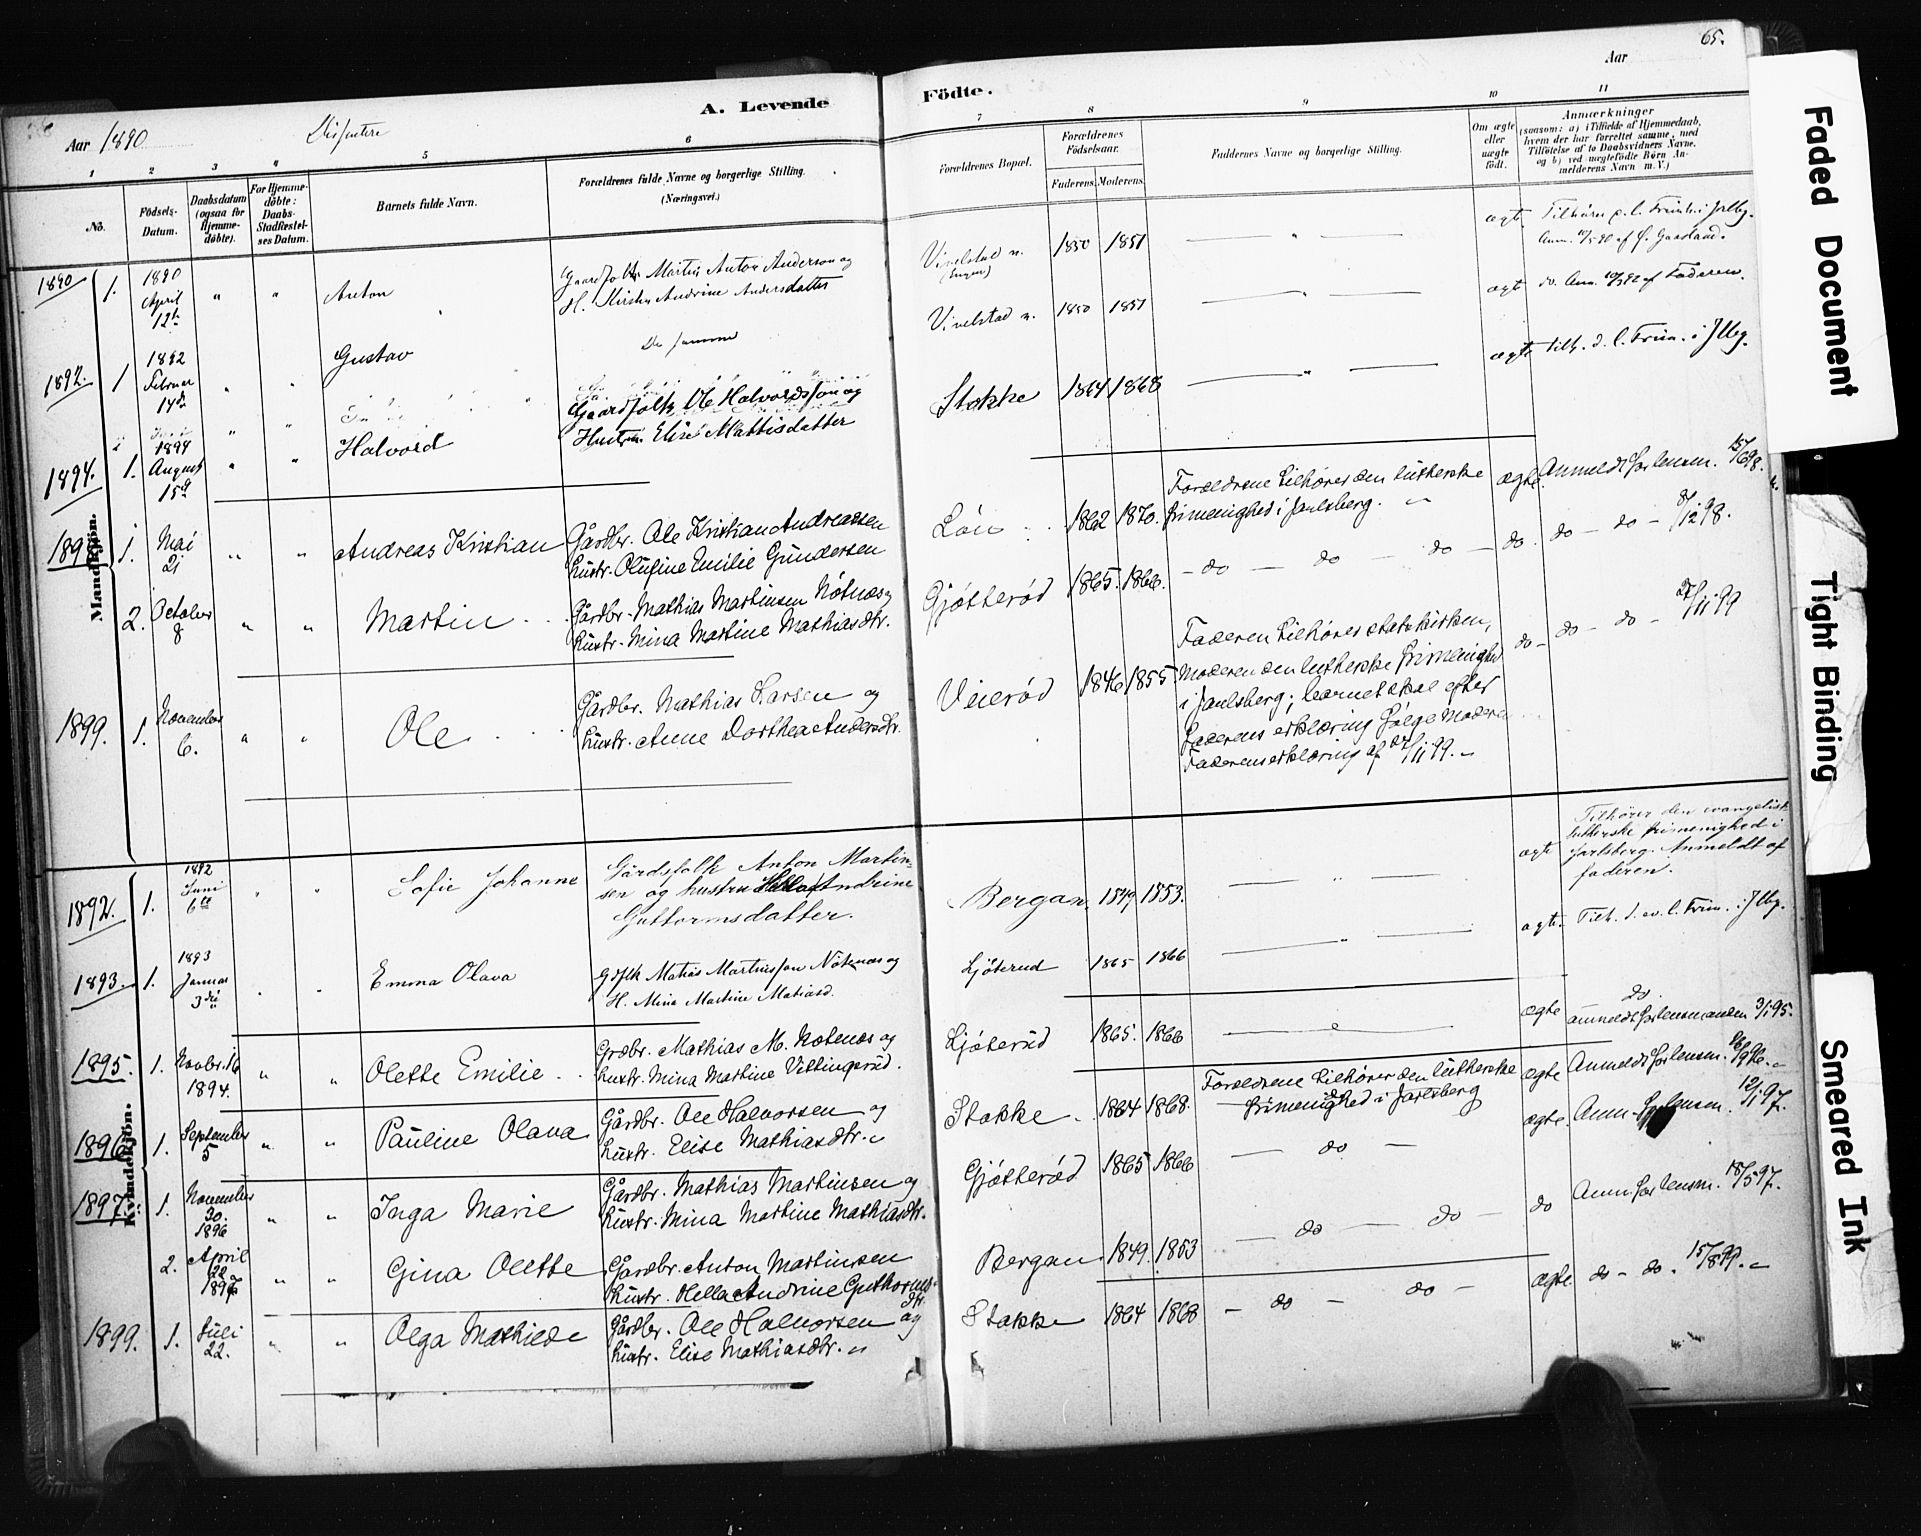 65.
Aar 1890
Dissentere
A. Levende
Födte.
Aar
1
2
3
4
5
6
7
8
9
10
11
No.
Födsels-
Datum.
Daabsdatum
(ogsaa for
Hjemme-
døbte).
For Hjemme-
døbte:
Daabs-
Stadfæstel-
ses Datum.
Barnets fulde Navn.
Forældrenes fulde Navne og borgerlige Stilling.
(Næringsvei.)
Forældrenes Bopæl.
Forældrenes
Födselsaar.
Faderens.
Moderens.
Faddernes Navne og borgerlige Stilling.
Om ægte
eller
uægte
født.
Anmærkninger
(saasom: a) i Tilfælde af Hjemmedaab,
hvem der har forrettet samme, med
Tilføielse af to Daabsvidners Navne,
og b) ved uægtefødte Børn An-
melderens Navn m. V.)
Mandkjön.
1890
1.
1890
April
12te
" "
Anton
Gaardfolk Martin Anton Anderson og
H. Kirsten Andrine Andersdatter
Vivelstad n.
1850
1851
— " —
ægt
1892.
1
1892
Februar
14de
" "
Gustav
De samme
Vivelstad n.
1850
1851
— " —
ægt
do. Anm. af Faderen.
1894.
1.
1894
August
15de
" "
Halvord
Gaardfolk Ole Halvordsson og
Hustru Elise Mattisdatter
Stokke
1864
1868
— " —
ægte
Tilh. d. l. Frim. i Jlbg.
1898
1.
Mai
21
" "
Andreas Kristian
Gårdbr. Ole Kristian Andreassen
hustr. Olufine Emilie Gundersen
Løn
1862
1870.
Forældrene tilhører den lutherske
frimenighed i Jarlsberg. "
ægte.
Anmeldt for lensm. 15/6 98.
2.
October
8
" "
Martin
Gårdbr. Mathias Martinsen Nøtnæs og
hustr. Mina Martine Mathiasdtr.
Gjøtterød
1865.
1866.
— do — do — do —
do.
do — do — 8/12 98.
1899.
1.
November
6.
" "
Ole
Gårdbr. Mathias Larsen og
hustr. Anne Dorthea Andersdtr.
Veierød
1846
1855
Faderen tilhører statskirken,
Moderen den lutherske frimenighed
i Jarlsberg; barnet skal efter
faderens erklæring følge Moderen
Faderens erklæring af 27/11 99. —
do —
do — do — 27/11 99
Kvindekjön.
1892.
1.
1892
Juni
6te
" "
Sofie Johanne
Gårdsfolk Anton Martin-
sen og hustru Olella Andrine
Guttormsdatter.
Bergan.
1849
1853.
— " —
ægte
Tilhører den evangelisk
lutherske frimenighed i
Jarlsberg. Anmeldt af
faderen.
1893.
1.
1893
Januar
3die
" "
Emma Olava
Gdflk Matias Martinsson Nøtnæs og
H. Mina Martine Matiasd.
Gjøterud
1865
1866
— " —
ægte.
Tilh. d. ev. l. Frim. i Jlbg.
1895.
1.
Novbr. 16
1894.
" "
Olette Emilie
Grdbr. Mathias M. Notenæs og
hustr. Mina Martine Vittingsrud.
Gjøterud
1865.
1866
— " —
ægte
do.
anmeldt for lensmanden 3/1 95.
1896
1.
September
5
" "
Pauline Olava
Gårdbr. Ole Halvorsen og
hustr. Elise Mathiasdtr. "
Stokke
1864
1868.
Forældrene tilhører den lutherske
frimenighed i Jarlsberg
ægte
Anmeldt for lensm. 16/9 96. "
1897
1.
November
30.
1896
" "
Inga Marie
Gårdbr. Mathias Martinsen og
hustr. Mina Martine Mathiasdtr.
Gjøtterød
1865
1866
— do —
ægte.
Anm. for lensm. 12/1 97.
2.
April
22
1897
" "
Gina Olette
Gårdbr. Anton Martinsen
hustr. Olella Andrine Guthorms-
dtr.
Bergan
1849.
1853
— do — do —
do
Anm for lensm. 18/5 97.
1899.
1.
Juli
22.
" "
Olga Mathilde
Gårdbr. Ole Halvorsen og
hustr. Elise Mathiasdtr. "
Stokke
1864
1868
— do — do —
ægte
do — do. 15/8 99. "
Faded Document
Tight Binding
Smeared Ink